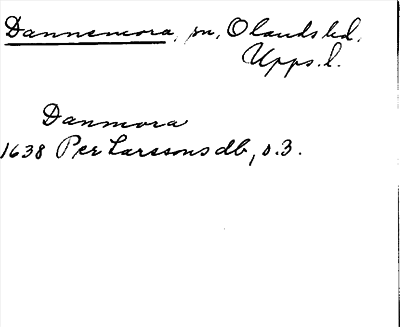 Dannemora, sn, Olands hd.
Upps. l.
Danmora
1638 Per Larssons db, s. 3.